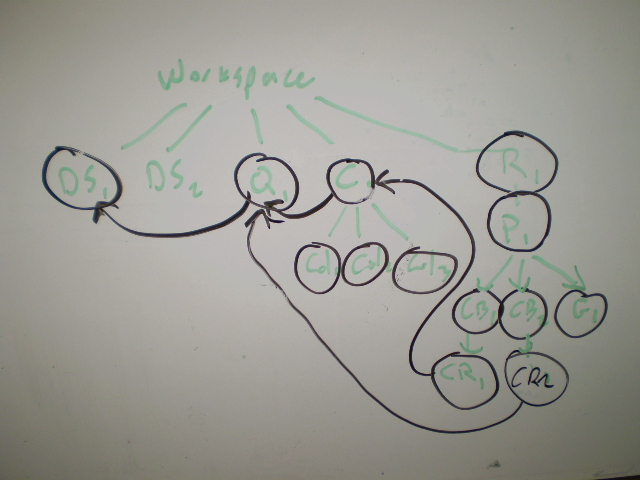 Workspace
DS1 DS2 Q1 C1 R1
P1
Col1 Col2 Col3
CB1 CB2 G1
CR1 CR2